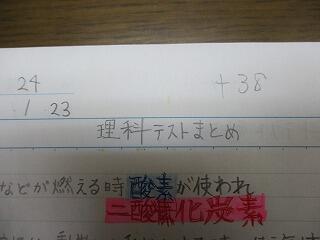 24
1 23
+38
理科テストまとめ
などが燃える時酸素が使われ
二酸化炭素